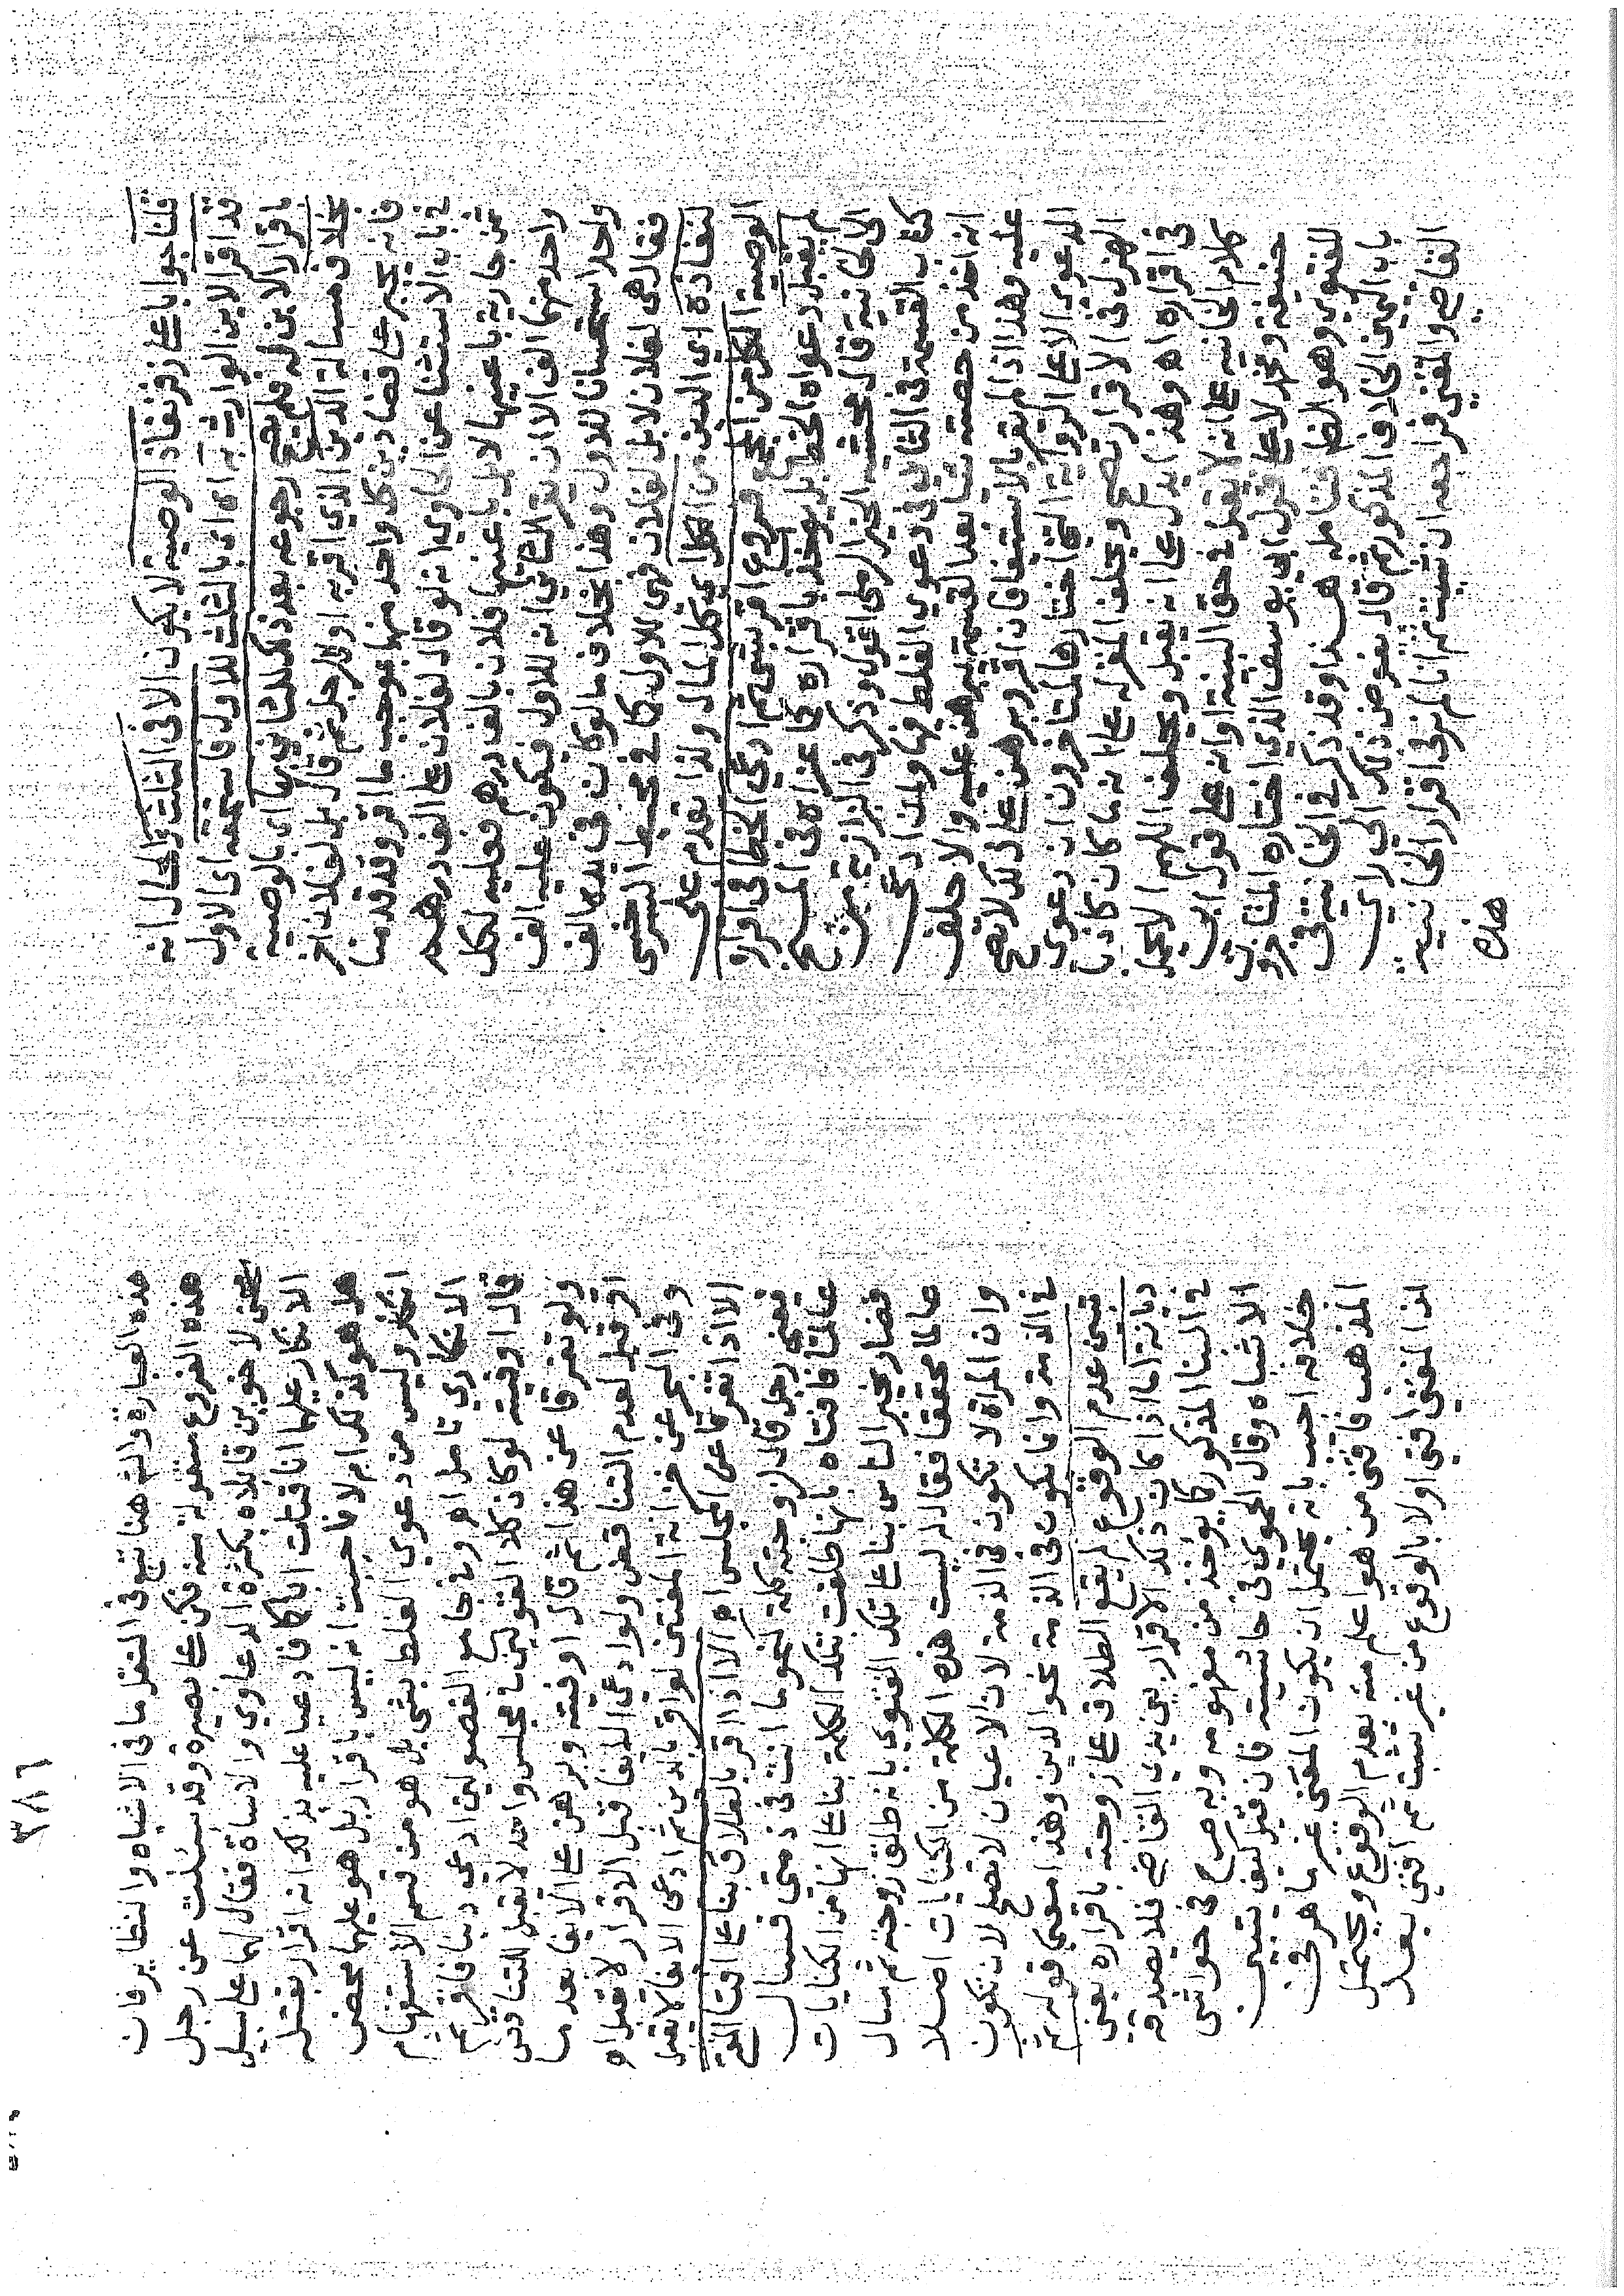 قلنا جوابا على زفر نفاذ الوصية لا يكون الا فى الثلث والحال انه
قد اقر الابن الوارث به اى بالثلث للاول فاستحقه اى الاول
باقرار الابن له فلم يصح رجوعه بعد ذلك للثاني بها اى بالوصية
بخلاف مسالة الدين الذي اقر به اولا لرجل ثم قال بل لفلان اخر
فانه يجبر على قضا دين كل واحد منهما بموجب ما اقر وقد قدمنا
في باب الاستثنا عن الحاوي انه لو قال لفلان على الف درهم
ثمن جارية باعنيها لا بل باعنيها فلان بالف درهم فعليه لكل
واحد منهما الف الا ان يقر الثاني انه للاول فيكون عليه الف
واحد استحسانا للاول وهذا بخلاف ما لو كان فى يده الف
فقال هى لفلان لا بل لفلان فهى للاول كما فى محيط السرخسى
لنفاذه اي الدين من الكل اي كل المال ولذا تقدم على
الوصية الكل من المجمع فروع اقر بشى ثم ادعي الخطا فى اقراره
لم يقبل دعواه الخطا بل يوخذ باقراره كما عزاه فى المنح
الى الخانية قال محشيه الخير الرملى اقول وذكر فى البزازية من
كتاب القسمة فى الثاني فى دعوي الغلط فيها وان ادعى
انه اخذ من حصته شيا بعد القسمة يبرهن عليه والا حلف
عليه وهذا اذا لم يقر بالاستيفا فان اقر وبرهن على ذلك لا تصح
الدعوى الا على الرواية التي اختارها المتاخرون ان دعوى
الهزل فى الاقرار تصح ويحلف المقر له على انه ما كان كاذبا
فى اقراره اه وهذا يدل على انه يقبل ويحلف اللهم الا ان يحمل
كلام الخانيه على انه لا يقبل فى حق البينة او انه على قول ابي
حنيفة ومحمد لا على قول ابي يوسف الذي اختاره المتاخرون
للفتوى وهو الظ فتامله هذا وقد ذكر فى الخانية فى
باب اليمين الخلاف المذكور ثم قال يفوض ذلك الى راي
القاضي والمفتي فراجعه ان شيت ثم انا لم نر فى اقرار الخانية
هذه
٣٨٦
هذه العبارة والش هنا تبع فى النقل ما فى الاشباه والنظاير فان
هذه الفروع منقولة منه فكن على بصيرة وقد سئلت عن رجل
جنى لاخوين قابلاه بكثرة الدعاوي والاساة فقال لهما على سبيل
الانكار عليهما انا قتلت اباكما فادعيا عليه بذلك انه اقرار بقتله
هل هو كذلك ام لا فاجبت انه ليس باقرار بل هو عليهما محض
انكار وليس من دعوي الغلط بشى بل هو من قسم الاستفهام
الانكاري تامل اه وفى جامع الفصولين ادعي دينا فاقر ثم
قال اوفيته لو كان كلا القولين فى مجلس واحد لا تقبل للتناقض
ولو تفرقا عن هذا ثم قال اوفيته وبرهن على الايفا بعد ما
اقر قبل لعدم التناقض ولو ادعى الايفا قبل الاقرار لا تقبل اه
وفى البحر عن خزانة المفتين لو اقر بالدين ثم ادعى الايفا لا تقبل
الا اذا تفرقا عن المجلس اه الا اذا اقر بالطلاق بناء على افتا المفتي
فعنى رجل قال لزوجته كلمة نحو ما انت فى ذمتى فسال
عالما فافتاه بانها طلقت بتلك الكلمة بناء على انها من الكنايات
فصار يخبر الناس بناء على تلك الفتوى بانه طالق زوجته ثم سال
عالما محققا فقال له ليست هذه الكلمة من الكنايات اصلا
وان المراة لا تكون فى الذمة لان الاعيان لا تصلح لان تكون
فى الذمة وانما تكون فى الذمة نحو الدين وهذا معنى قوله ثم
تبين عدم الوقوع لم يقع الطلاق على زوجته باقراره يعنى
ديانة اما اذا كان ذلك الاقرار بين يدي القاضي فلا يصدقه
فى البنا المذكور كما يوخذ من مفهومه وبه صرح فى حواشى
الاشباه وقال الحموي فى حاشيته فان قيل كيف يتبين
خلافه اجيب بانه يحتمل ان يكون المفتى غير ماهر فى
المذهب فافتى من هو اعلم منه بعدم الوقوع ويحتمل
ان المفتى افتى اولا بالوقوع من غير تثبت ثم افتى بعد